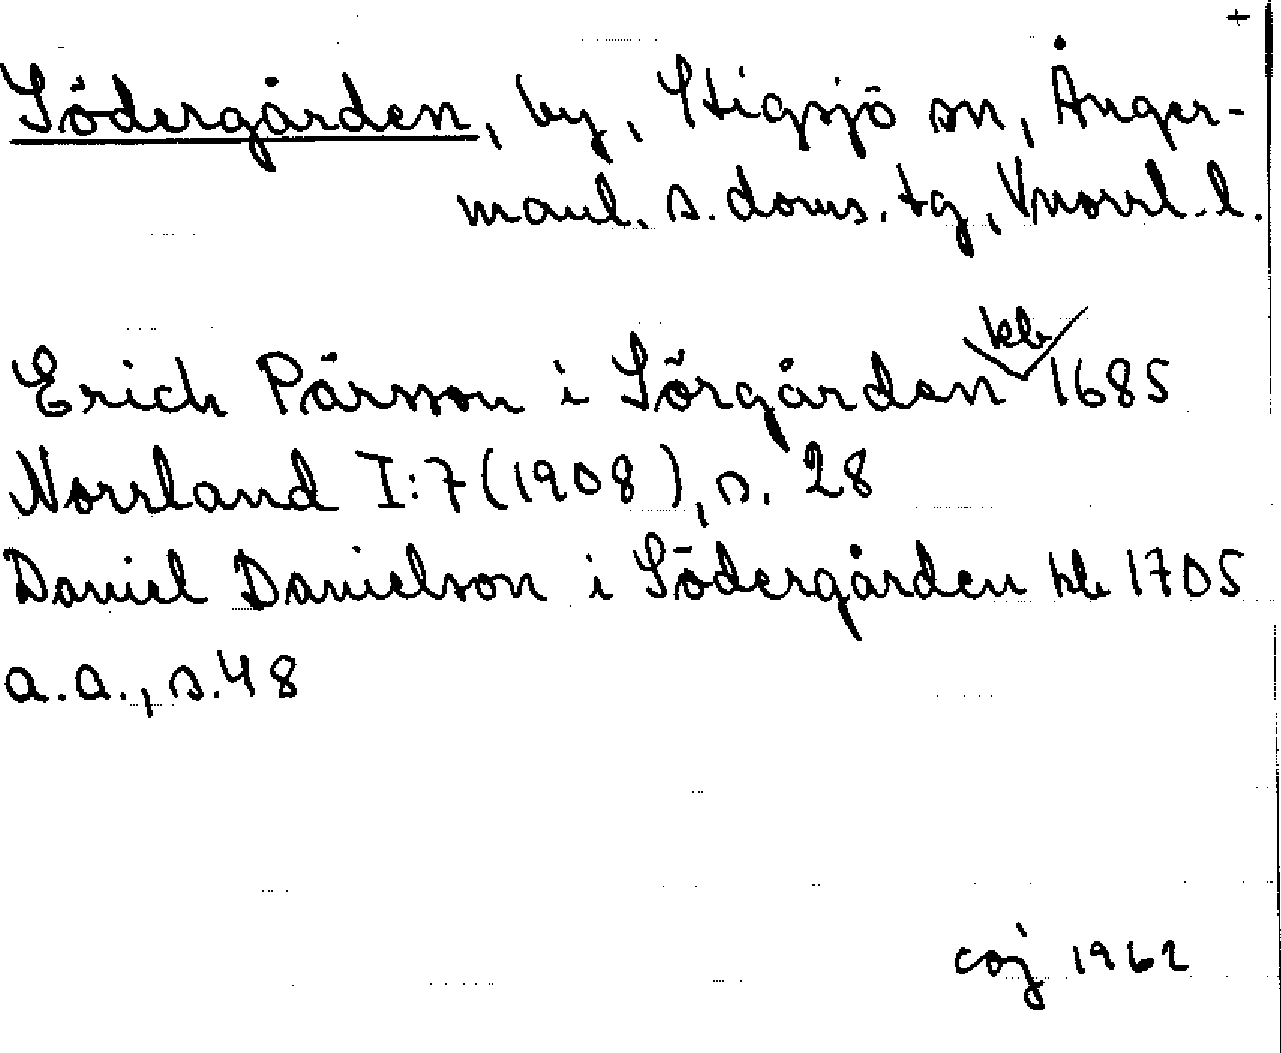 +
Södergården, by, Stigsjö sn, Ånger-
manl. s. doms. tg, Vnorrl. l.
kb
Erich Pärsson i Sörgården 1685
Norrland I:7 (1908), s. 28
Daniel Danielson i Södergården kb 1705
a.a., s. 48
coj 1962